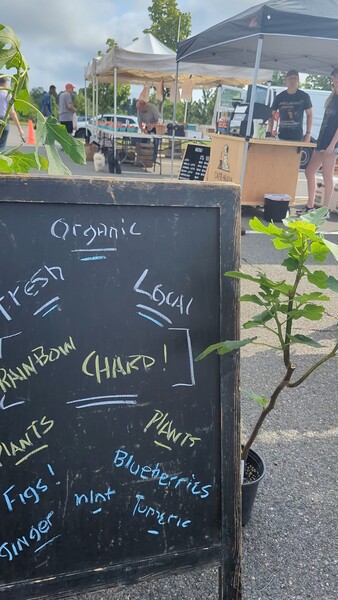 Organic
Fresh Local
RAINBOW CHARD!
PLANTS PLANTS
Figs! mInt Blueberries
GInger Turmeric